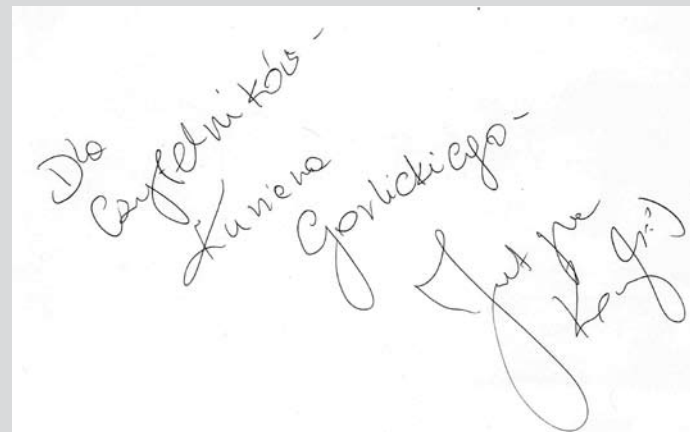 Dla
Czytelników-
Kuriera
Gorlickiego-
Justyna